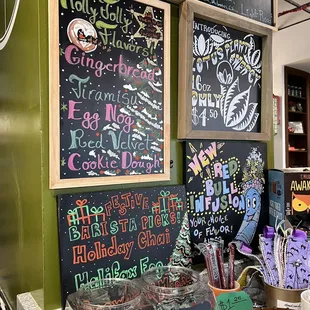 Holly Jolly
Flavors!
Gingerbread
Tiramisu
Egg Nog
Red Velvet
Cookie Dough
INTRODUCING
LOTUS PLANT
ENERGY
16oz
ONLY
$4.50
NEW
Red
Bull
INFUSION
YOUR CHOICE
OF FLAVOR
FESTIVE
BARISTA PICKS!
Holiday Chai
Halifax